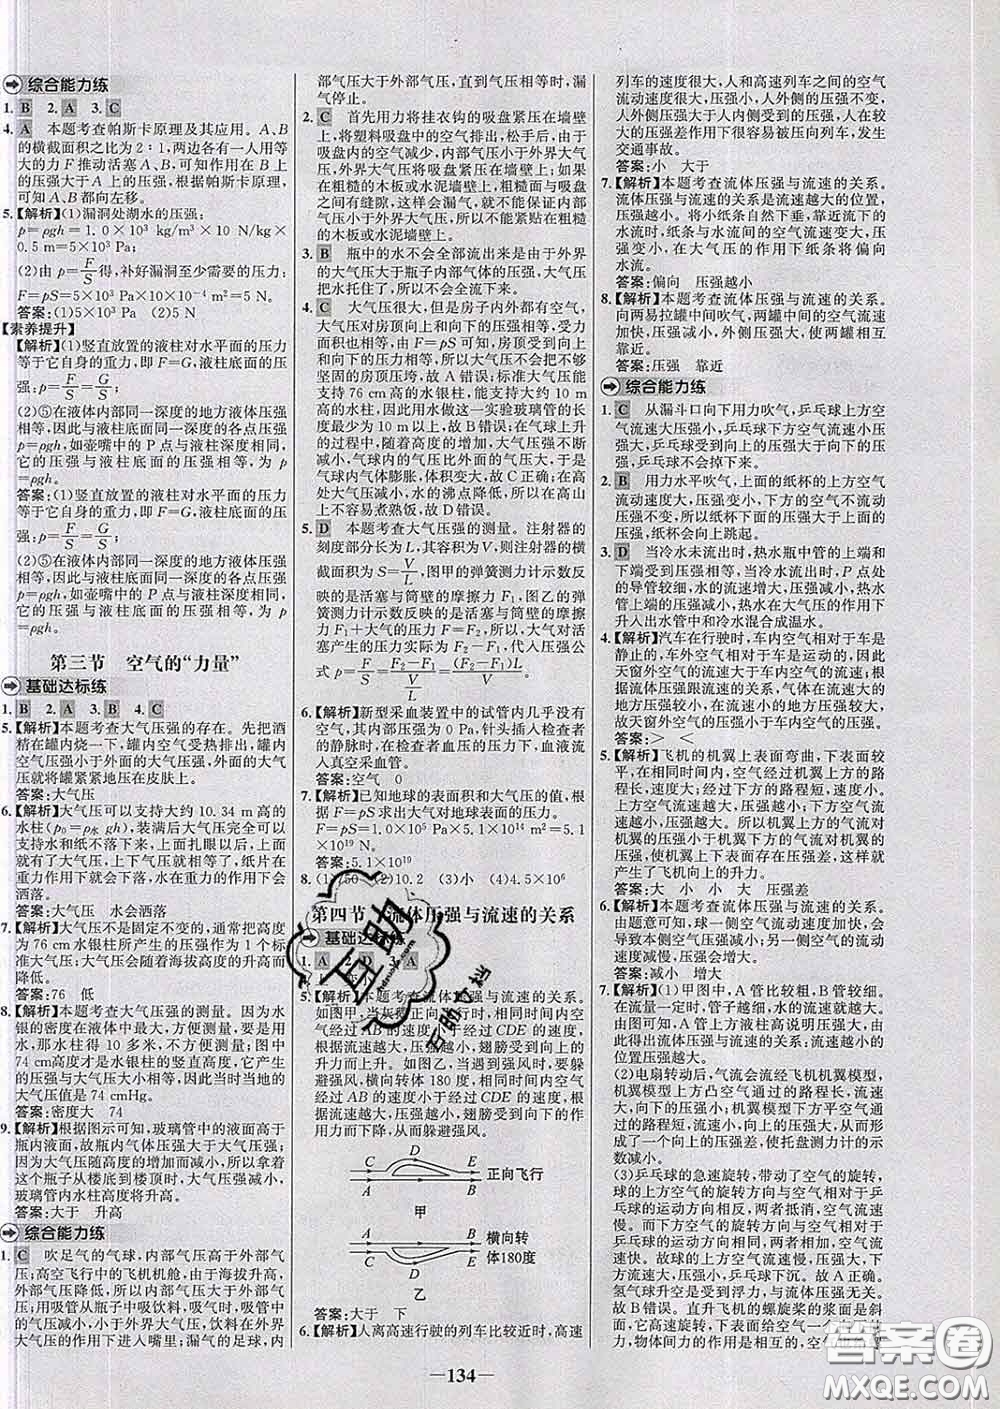 综合能力练
1. B 2. A 3. C
4. A 本题考查帕斯卡原理及其应用。A、B
的横截面积之比为 2∶1,两边各有一人用等
大的力 F 推动活塞 A、B,可知作用在 B 上
的压强大于 A 上的压强,根据帕斯卡原理,
可知 A、B 都向左移。
5.【解析】(1)漏洞处湖水的压强:
p=ρgh=1.0×10³ kg/m³×10 N/kg×
0.5 m=5×10³ Pa;
(2)由 p=F/S得,补好漏洞至少需要的压力:
F=pS=5×10³ Pa×10×10⁻⁴ m²=5 N。
答案:(1)5×10³ Pa (2)5 N
【素养提升】
【解析】(1)竖直放置的液柱对水平面的压力
等于它自身的重力,即 F=G,液柱底面的压
强:p=F/S=G/S;
(2)⑤在液体内部同一深度的地方液体压强
相等,因此与液柱底面同深度的各点压强
相同,如壶嘴中的 P 点与液柱深度相同,
它的压强与液柱底面的压强相等,为 p
=ρgh。
答案:(1)竖直放置的液柱对水平面的压力
等于它自身的重力,即 F=G,液柱底面的压
强:p=F/S=G/S;
(2)⑤在液体内部同一深度的地方液体压强
相等,因此与液柱底面同深度的各点压强相
同,如壶嘴中的 P 点与液柱深度相同,它
的压强与液柱底面的压强相等,为 p=ρgh。
第三节 空气的“力量”
基础达标练
1. B 2. A 3. B 4. C
5.【解析】本题考查大气压强的存在。先把酒
精在罐内烧一下,罐内空气受热排出,罐内
空气压强小于外面的大气压强,外面的大气
压就将罐紧紧地压在皮肤上。
答案:大气压
6.【解析】大气压可以支持大约 10.34 m 高的
水柱(p₀=ρ水 gh),装满后大气压完全可以
支持水和纸不落下来,上面扎眼以后,上面
就有了大气压,上下气压就相等了,纸片在
重力作用下就会下落,水在重力的作用下会
洒落。
答案:大气压 水会洒落
7.【解析】大气压不是固定不变的,通常把高度
为 76 cm 水银柱所产生的压强作为 1 个标
准大气压;大气压强随着海拔高度的升高而
降低。
答案:76 低
8.【解析】本题考查大气压强的测量。因为水
银的密度在液体中最大,方便测量,若是用
水,那水柱得 10 多米,不方便测量;图中
74 cm高度才是水银柱的竖直高度,它产生
的压强与大气压大小相等,因此当时当地的
大气压值是 74 cmHg。
答案:密度大 74
9.【解析】根据图示可知,玻璃管中的液面高于
瓶内液面,故瓶内气体压强大于大气压强;
因为大气压随高度的增加而减小,所以拿着
这个瓶子从楼底到楼顶时,大气压强减小,
玻璃管内水柱高度将升高。
答案:大于 升高
综合能力练
1. C 吹足气的气球,内部气压高于外部气
压;高空飞行中的飞机机舱,由于海拔升高,
外部气压降低,所以内部气压高于外部气
压;用吸管从瓶子中吸饮料,吸气时,吸管中
的气压减小,小于外界大气压,饮料在外部
大气压的作用下进入嘴里;漏气的足球,内
部气压大于外部气压,直到气压相等时,漏
气停止。
2. C 首先用力将挂衣钩的吸盘紧压在墙壁
上,将塑料吸盘中的空气排出,松手后,由于
内部的空气减少,内部气压小于外界大气
压,外界大气压将吸盘紧压在墙壁上;如果
在粗糙的木板或水泥墙壁上,吸盘与接触面
间有缝隙,这样会漏气,就不能保证内部气
压小于外界大气压,所以不能使用在粗糙
的木板或水泥墙壁上。
3. B 瓶中的水不会全部流出来是由于外界
的大气压大于瓶子内部气体的压强,大气压
把水托住了,所以不会全流下来。
4. C 大气压很大,但是房子内外都有空气,
大气压对房顶向上和向下的压强相等,受力
面积也相等,由 F=pS 可知,房顶受到向下
和向上的压力相等,所以大气压不会把我们
的房子屋顶压垮,故 A 错误;标准大气压能
支持 76 cm高的水银柱,能支持大约 10 m
高的水柱,因此用水做这一实验玻璃管的长
度最少为 10 m 以上,故 B 错误;在气球上升
的过程中,随着高度的增加,大气压强不断
减小,气球内的气压比外面的气压大,于是
气球内气体膨胀,体积变大,故 C 正确;在高
处大气压减小,水的沸点降低,所以在高山
上不容易煮熟饭,故 D 错误。
5. D 本题考查大气压强的测量。注射器的
刻度部分长为 L,其容积为 V,则注射器的横
截面积为 S=V/L,图甲的弹簧测力计示数反
映的是活塞与筒壁的摩擦力 F₁,图乙的弹簧
测力计示数反映的是活塞与筒壁的摩擦
力 F₁+大气的压力=F₂,所以,大气对活
塞产生的压力实际为 F=F₂-F₁,代入压强公
式 p=F/S=(F₂-F₁)/(V/L)=(F₂-F₁)L/V。
6.【解析】新型采血装置中的试管内几乎没有
空气,其内部压强为 0 Pa,针头插入检查者
的静脉时,在检查者血压的压力下,血液流
入真空采血管。
答案:空气 0
7.【解析】已知地球的表面积和大气压的值,根
据 F=pS 求出大气对地球表面的压力。
F=pS=1.0×10⁵ Pa×5.1×10¹⁴ m²=5.1
×10¹⁹ N。
答案:5.1×10¹⁹
8. (1)50 (2)10.2 (3)小 (4)4.5×10⁶
第四节 流体压强与流速的关系
基础达标练
1. A 2. D A
5.【解析】本题考查流体压强与流速的关系。
如图甲,当灰雁正向飞行时,相同时间内空气
经过 AB 的速度小于经过 CDE 的速度,
根据流速越大,压强越小,翅膀受到向上的
升力而上升。如图乙,当遇到强风时,要躲
避强风,横向转体 180 度,相同时间内空气
经过 AB 的速度大于经过 CDE 的速度,根
据流速越大,压强越小,翅膀受到向下的作
用力而下降,从而躲避强风。
C D E 正向飞行
A B
甲
A B 横向转
C D E 体180度
乙
答案:大于 下
6.【解析】人离高速行驶的列车比较近时,高速
列车的速度很大,人和高速列车之间的空气
流动速度很大,人外侧的压强不变,
人内侧的压强变小,人外侧与内侧很大
的压强差作用下很容易被压向列车,发生
交通事故。
答案:小 大于
7.【解析】本题考查流体压强与流速的关系。
流体压强与流速的关系是流速越大的位置,
压强越小。将小纸条自然下垂,靠近流下的
水流时,纸条与水流间的空气流速变大,压
强变小,在大气压的作用下纸条将偏向
水流。
答案:偏向 压强越小
8.【解析】本题考查流体压强与流速的关系。
向两易拉罐中间吹气,两罐中间的空气流速
加快,压强减小,外侧压强大,使两罐相互
靠近。
答案:压强 靠近
综合能力练
1. C 从漏斗口向下用力吹气,乒乓球上方空
气流速大压强小,乒乓球下方空气流速小压
强大,乒乓球受到向上的压强大于向下的压
强,乒乓球不会掉下来。
2. B 用力水平吹气,上面的纸杯的上方空气
流动速度大,压强小,下方的空气不流动
压强大,所以纸杯下面的压强大于上面的压
强,纸杯会向上跳起。
3. D 当冷水未流出时,热水瓶中管的上端和
下端受到的压强相等,当冷水流出时,P 点处
的导管较细,水的流速大、压强减小,导致热
水管上端的压强减小,热水在大气压的作用下
升入出水管中和冷水混合成温水。
4.【解析】汽车在行驶时,车内空气相对于车是
静止的,车外空气相对于车是运动的,因此
天窗外空气的流速大于车内空气的流速,根
据流体压强跟流速的关系可知,天窗外空气
的压强减小,车内空气的压强不变,
故天窗外空气的压强小于车内空气的压强。
答案:> <
5.【解析】飞机的机翼上表面弯曲,下表面较
平,在相同时间内,空气经过机翼上方的路
程长,速度大;经过下方的路程短,速度小。
气体流速越大压强越小,气体流速越小压
强越大。所以机翼上方的气流对机翼的压
强小于机翼下方的气流对机翼的压
强,机翼上下表面的压强差,这样就产
生了飞机向上的升力。
答案:大 小 小 大 压强差
6.【解析】本题考查流体压强与流速的关系。
由题意可知,球一侧的空气流动速度变大会
导致压强减小;另一侧的空气流动速度变小
会导致压强增大。
答案:减小 增大
7.【解析】(1)甲图中,A 管比较粗,B 管较细,在
流量一定时,管子越细,水的流动速度越大,
由图可知,A 管上方液柱高说明压强大,由
此得出流体压强与流速的关系:流速越小的
位置压强越大。
(2)电扇转动后,气流会流经飞机机翼模型,
机翼模型上凸空气通过的路程长,流速
大,上方的压强小;机翼模型下方空气通
过的路程短,流速小,下方的压强大,从而
形成了一个向上的压强差,使托盘测力计的示
数减小。
(3)乒乓球的急速旋转,带动了空气的流转,
球的上方空气的旋转方向与空气相对于乒
乓球的流动方向相反,两者相抵消,空气流速
慢。而下方空气的旋转方向与空气相对
于乒乓球的流动方向相同,下方空气流速
快。故球的上方压强大,下方压强小,乒乓
球受到的压强差向下,乒乓球下沉。故 A 正确。
氢气球升空是受到的浮力大于重力,
故 B 错误。直升飞机的螺旋桨的形状是斜
面,它高速旋转给空气一个斜向下
的力,物体间力的作用是相互的,空气给
—134—
互助
答案圈
MXQE.COM